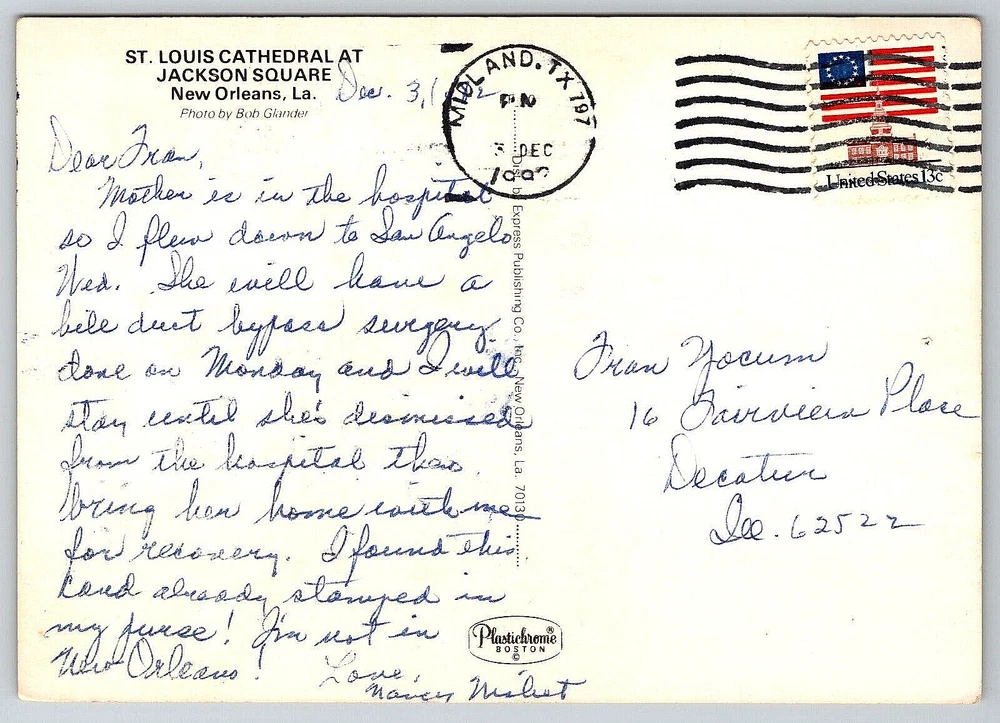 ST. LOUIS CATHEDRAL AT
JACKSON SQUARE
New Orleans, La.
Photo by Bob Glander
Dec. 3,
Dear Fran,
Mother is in the hospital
so I flew down to San Angelo
Wed. She will have a
bile duct bypass surgery
done on Monday and I will
stay until she's dismissed
from the hospital then
bring her home with me
for recovery. I found this
card already stamped in
my purse! I'm not in
New Orleans!
Love,
Nancy
Dist. by Express Publishing Co., Inc., New Orleans, La. 70130
Plastichrome®
BOSTON
©
MIDLAND. TX 797
PM
3 DEC
United States 13c
Fran Yocum
16 Fairview Place
Decatur
Ill. 62522